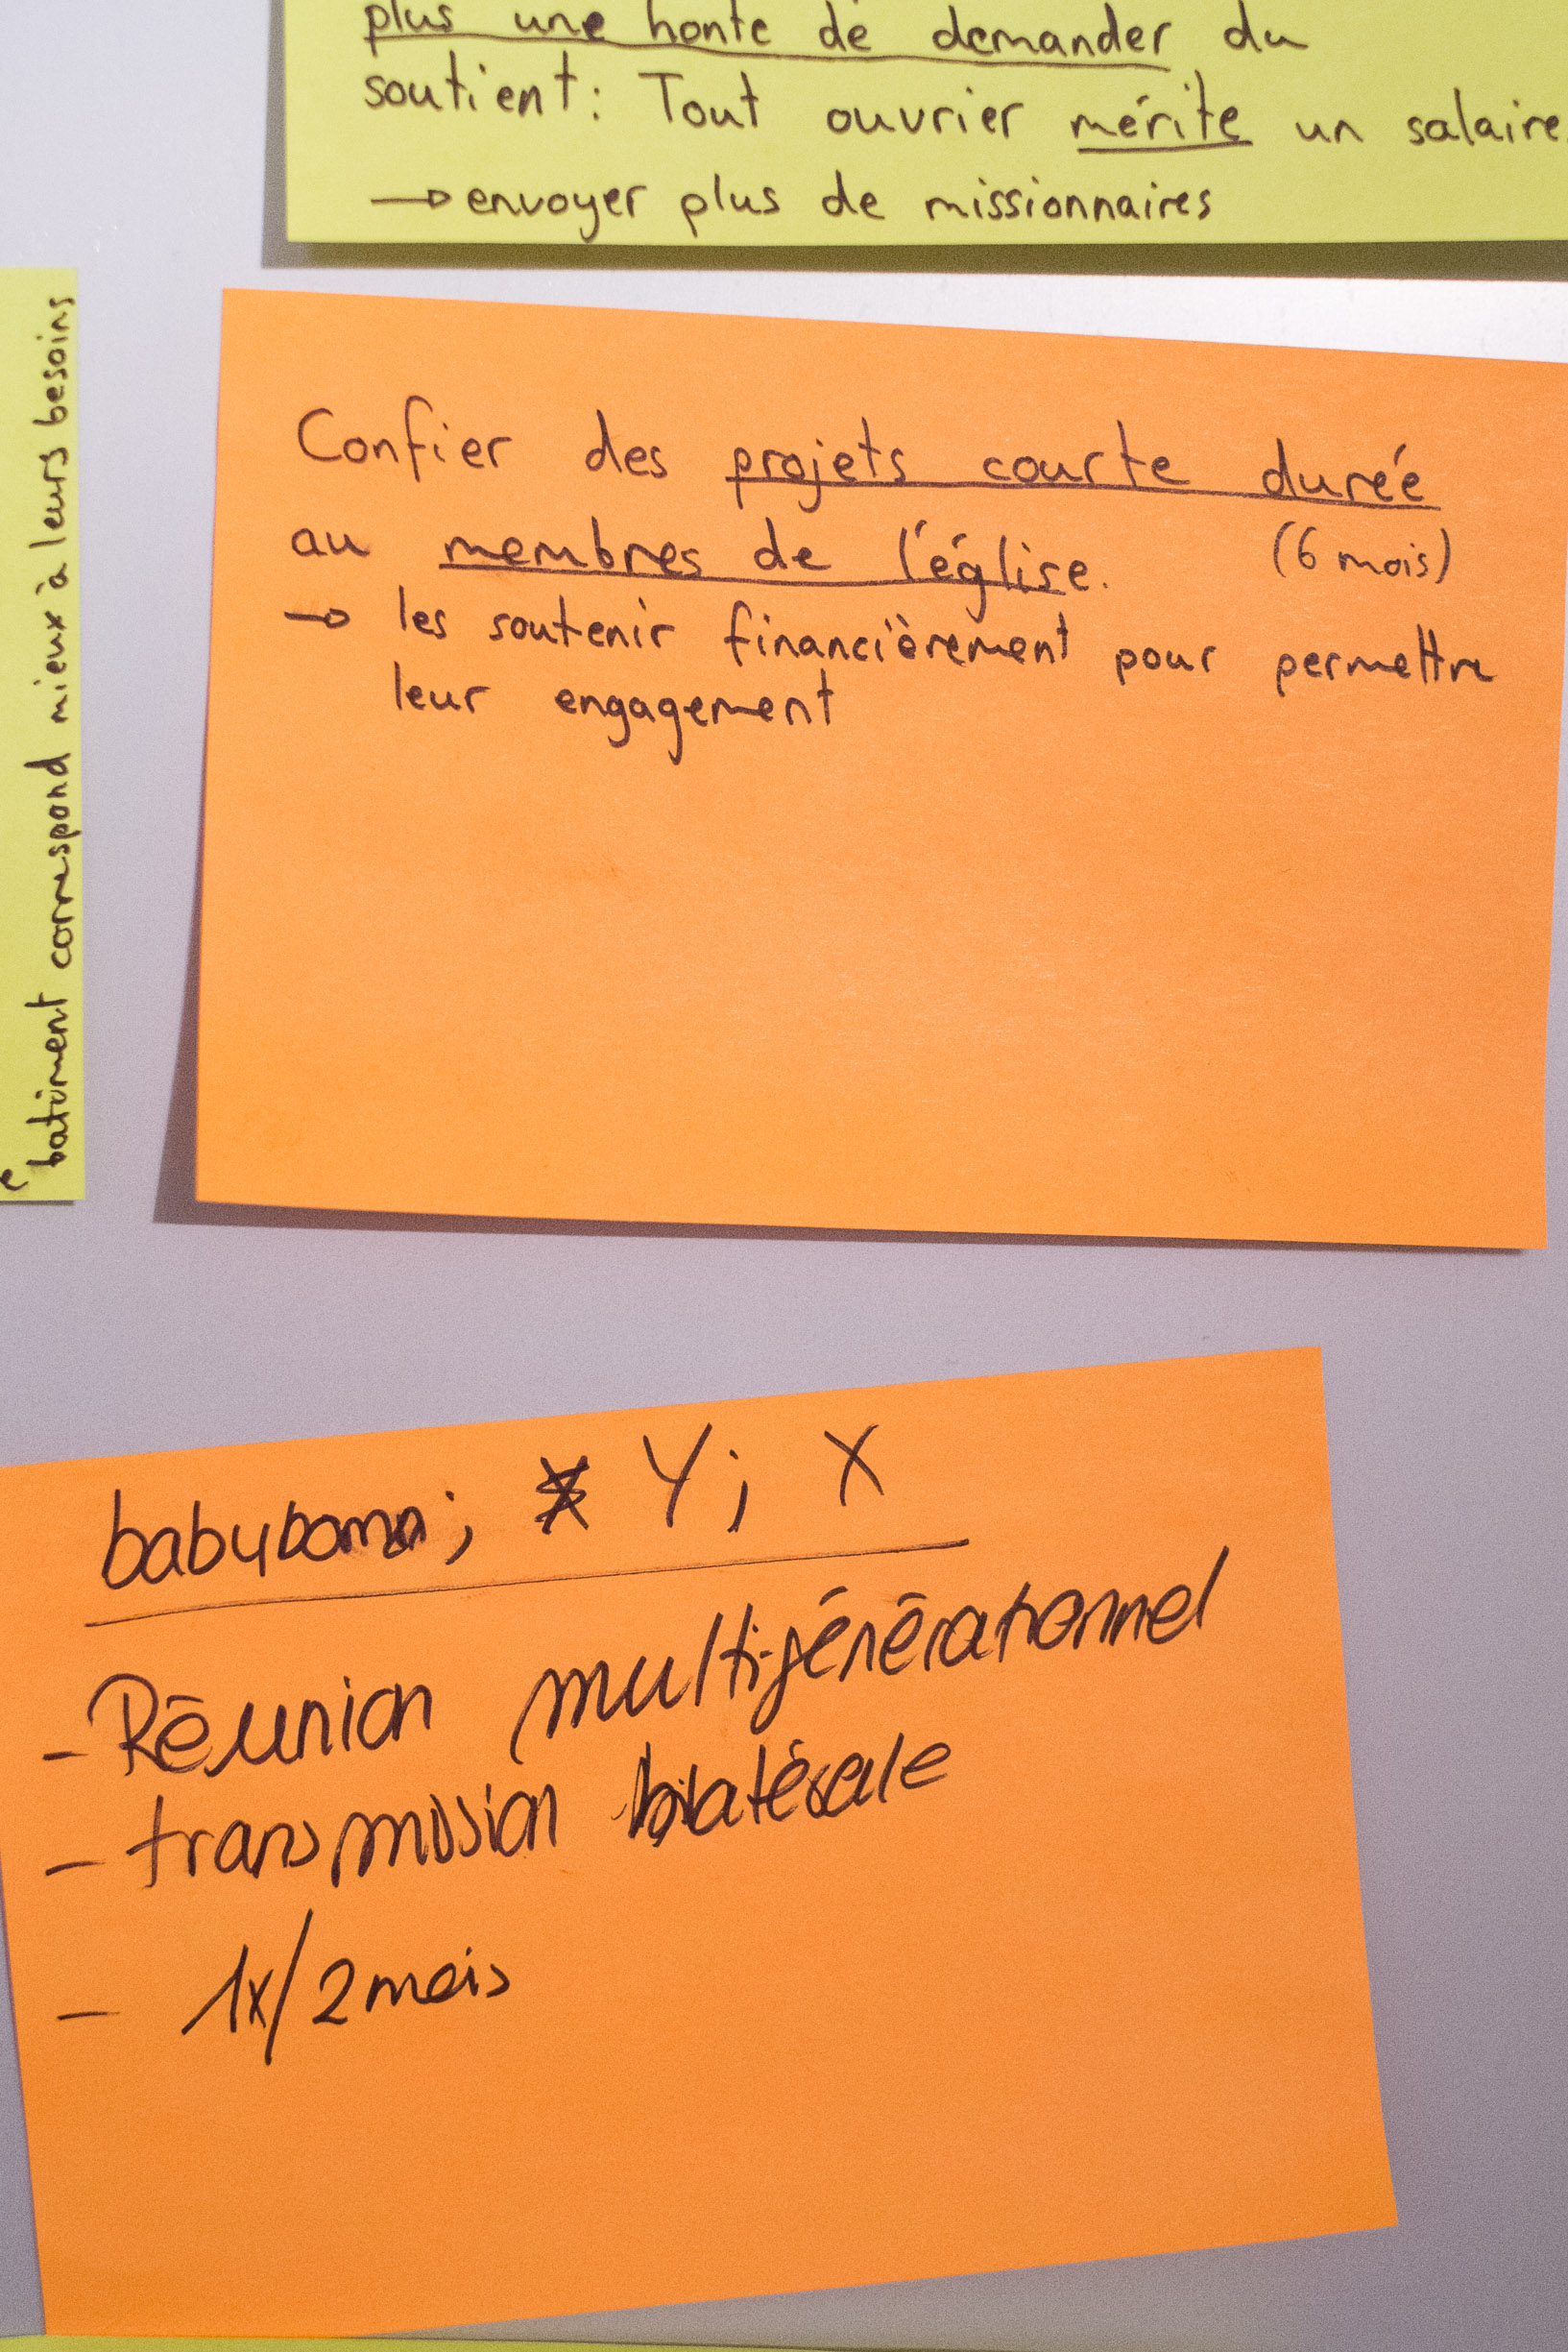 plus une honte de demander du
soutient: Tout ouvrier mérite un salaire.
→ envoyer plus de missionnaires
batiment correspond mieux à leurs besoins
Confier des projets courte durée
au membres de l'église. (6 mois)
→ les soutenir financièrement pour permettre
leur engagement
Y; X
- Réunion multi-générationnel
- transmission bilatérale
- 1x/2 mois